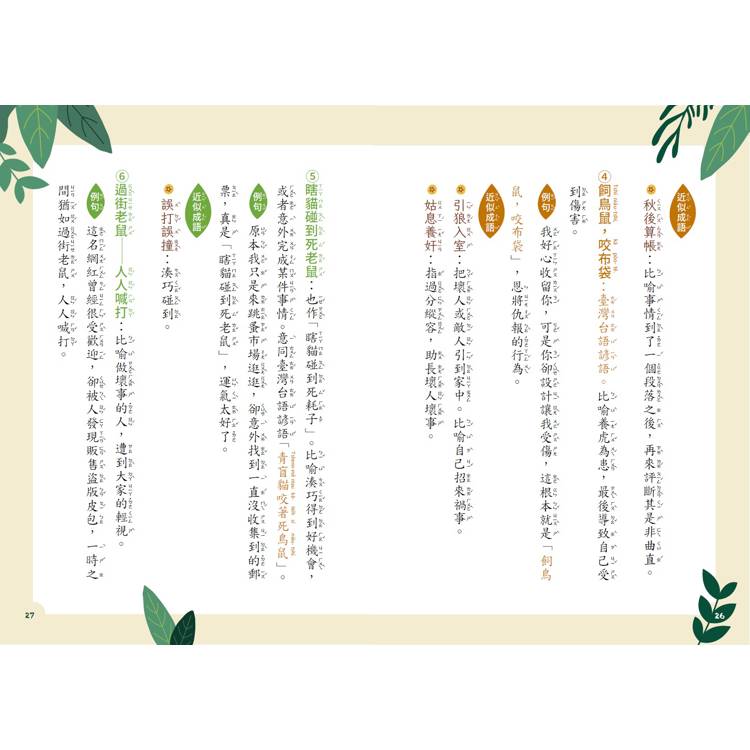 近似成語
秋後算帳：比喻事情到了一個段落之後，再來評斷其是非曲直。
④飼鳥鼠，咬布袋：臺灣台語諺語。比喻養虎為患，最後導致自己受
到傷害。
例句 我好心收留你，可是你卻設計讓我受傷，這根本就是「飼鳥
鼠，咬布袋」，恩將仇報的行為。
近似成語
引狼入室：把壞人或敵人引到家中。比喻自己招來禍事。
姑息養奸：指過分縱容，助長壞人壞事。
26
⑤瞎貓碰到死老鼠：也作「瞎貓碰到死耗子」。比喻湊巧得到好機會，
或者意外完成某件事情。意同臺灣台語諺語「青盲貓咬著死鳥鼠」。
例句 原本我只是來跳蚤市場逛逛，卻意外找到一直沒收集到的郵
票，真是「瞎貓碰到死老鼠」，運氣太好了。
近似成語
誤打誤撞：湊巧碰到。
⑥過街老鼠——人人喊打：比喻做壞事的人，遭到大家的輕視。
例句 這名網紅曾經很受歡迎，卻被人發現販售盜版皮包，一時之
間猶如過街老鼠，人人喊打。
27